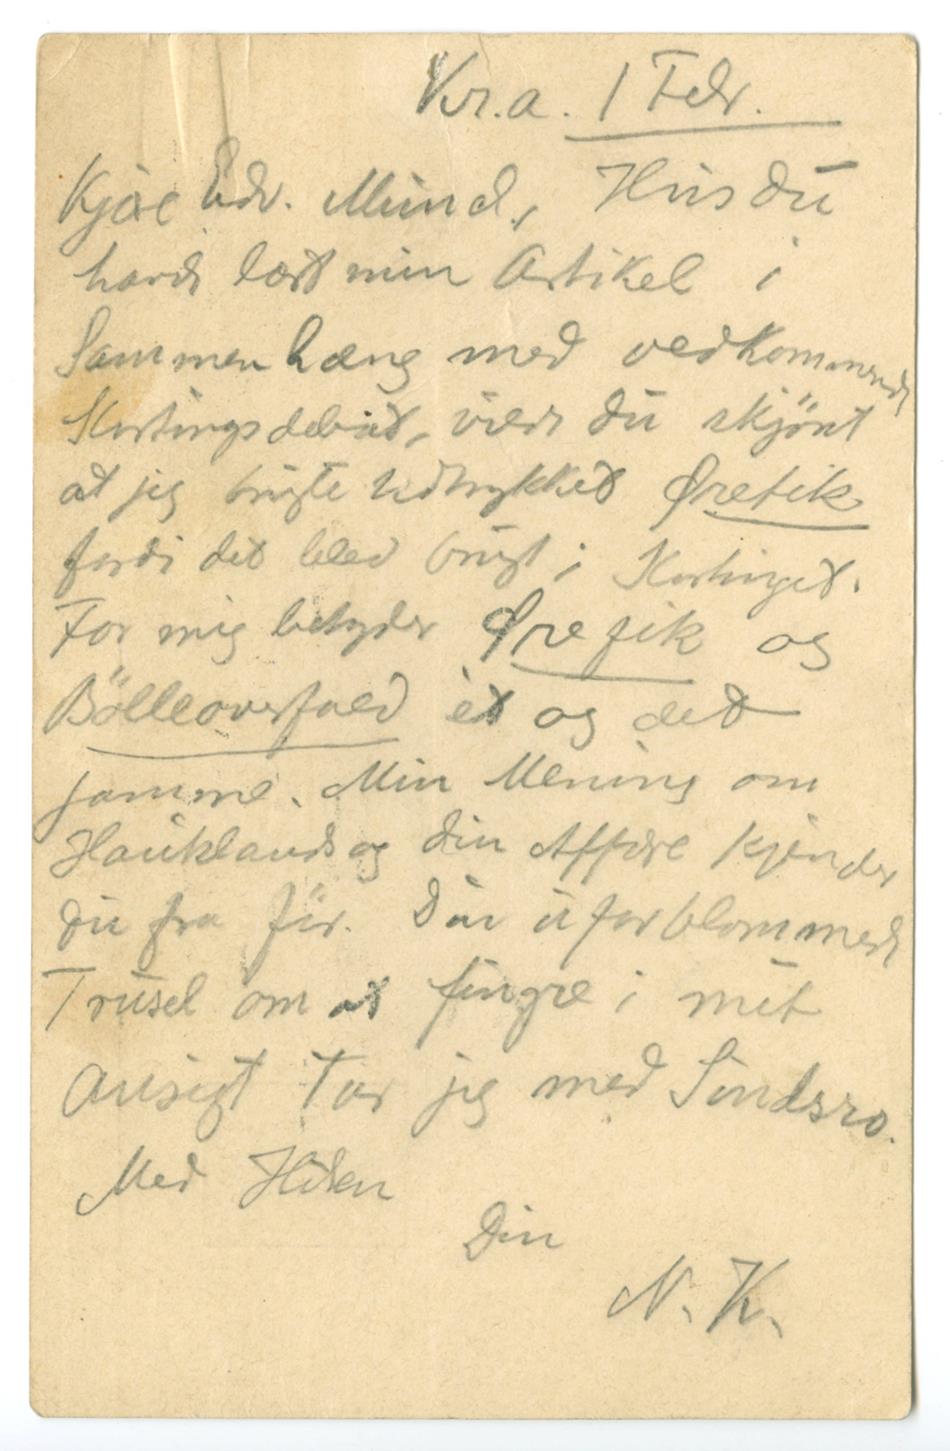 Kr.a. 1 Febr.
Kjære Edv. Munch, Hvis du
havde læst min Artikel i
Sammenhæng med vedkommende
Stortingsdebat, vilde du skjönt
at jeg brugte Udtrykket Örefik
fordi det blev brugt i Stortinget.
For mig betyder Örefik og
Bölleoverfald èt og det
samme. Min Mening om
Hauklands og din Affære kjender
du fra för. Din uforblommede
Trusel om at fingre i mit
Ansigt tar jeg med Sindsro.
Med Hilsen
Din
N. K.